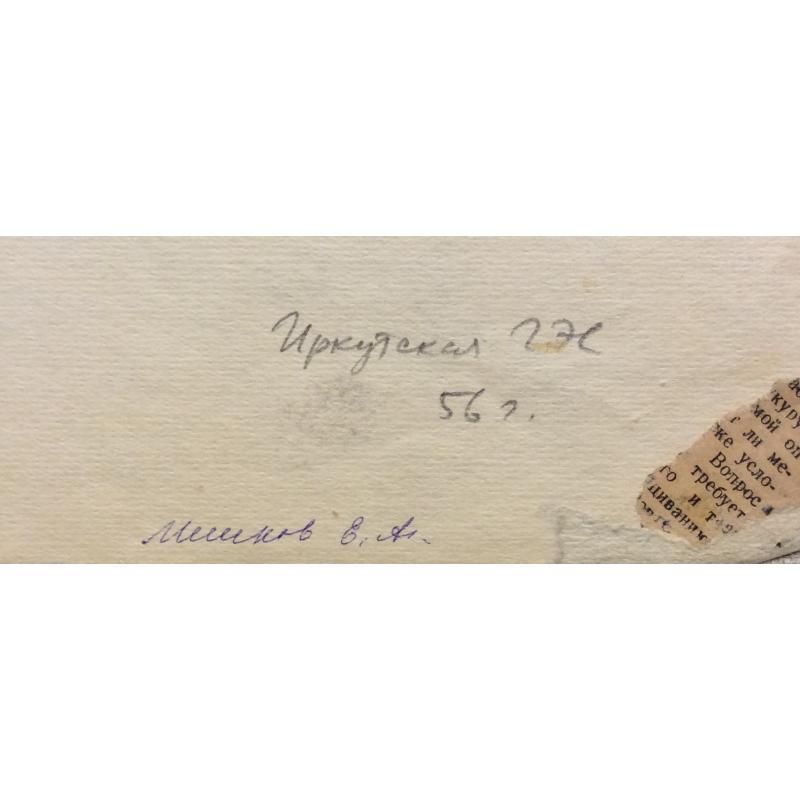 Иркутская ГЭС
56 г.
Мешков Е. А.
куру
мой оп
т ли ме-
же усло-
Вопрос
требует
го и т
щивани